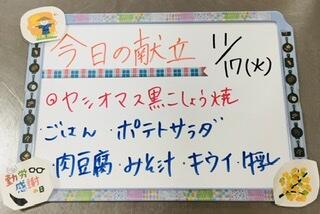 今日の献立
11/17(火)
◎ヤシオマス黒こしょう焼
・ごはん ・ポテトサラダ
・肉豆腐・みそ汁・キウイ・牛乳
勤労
感謝
の日